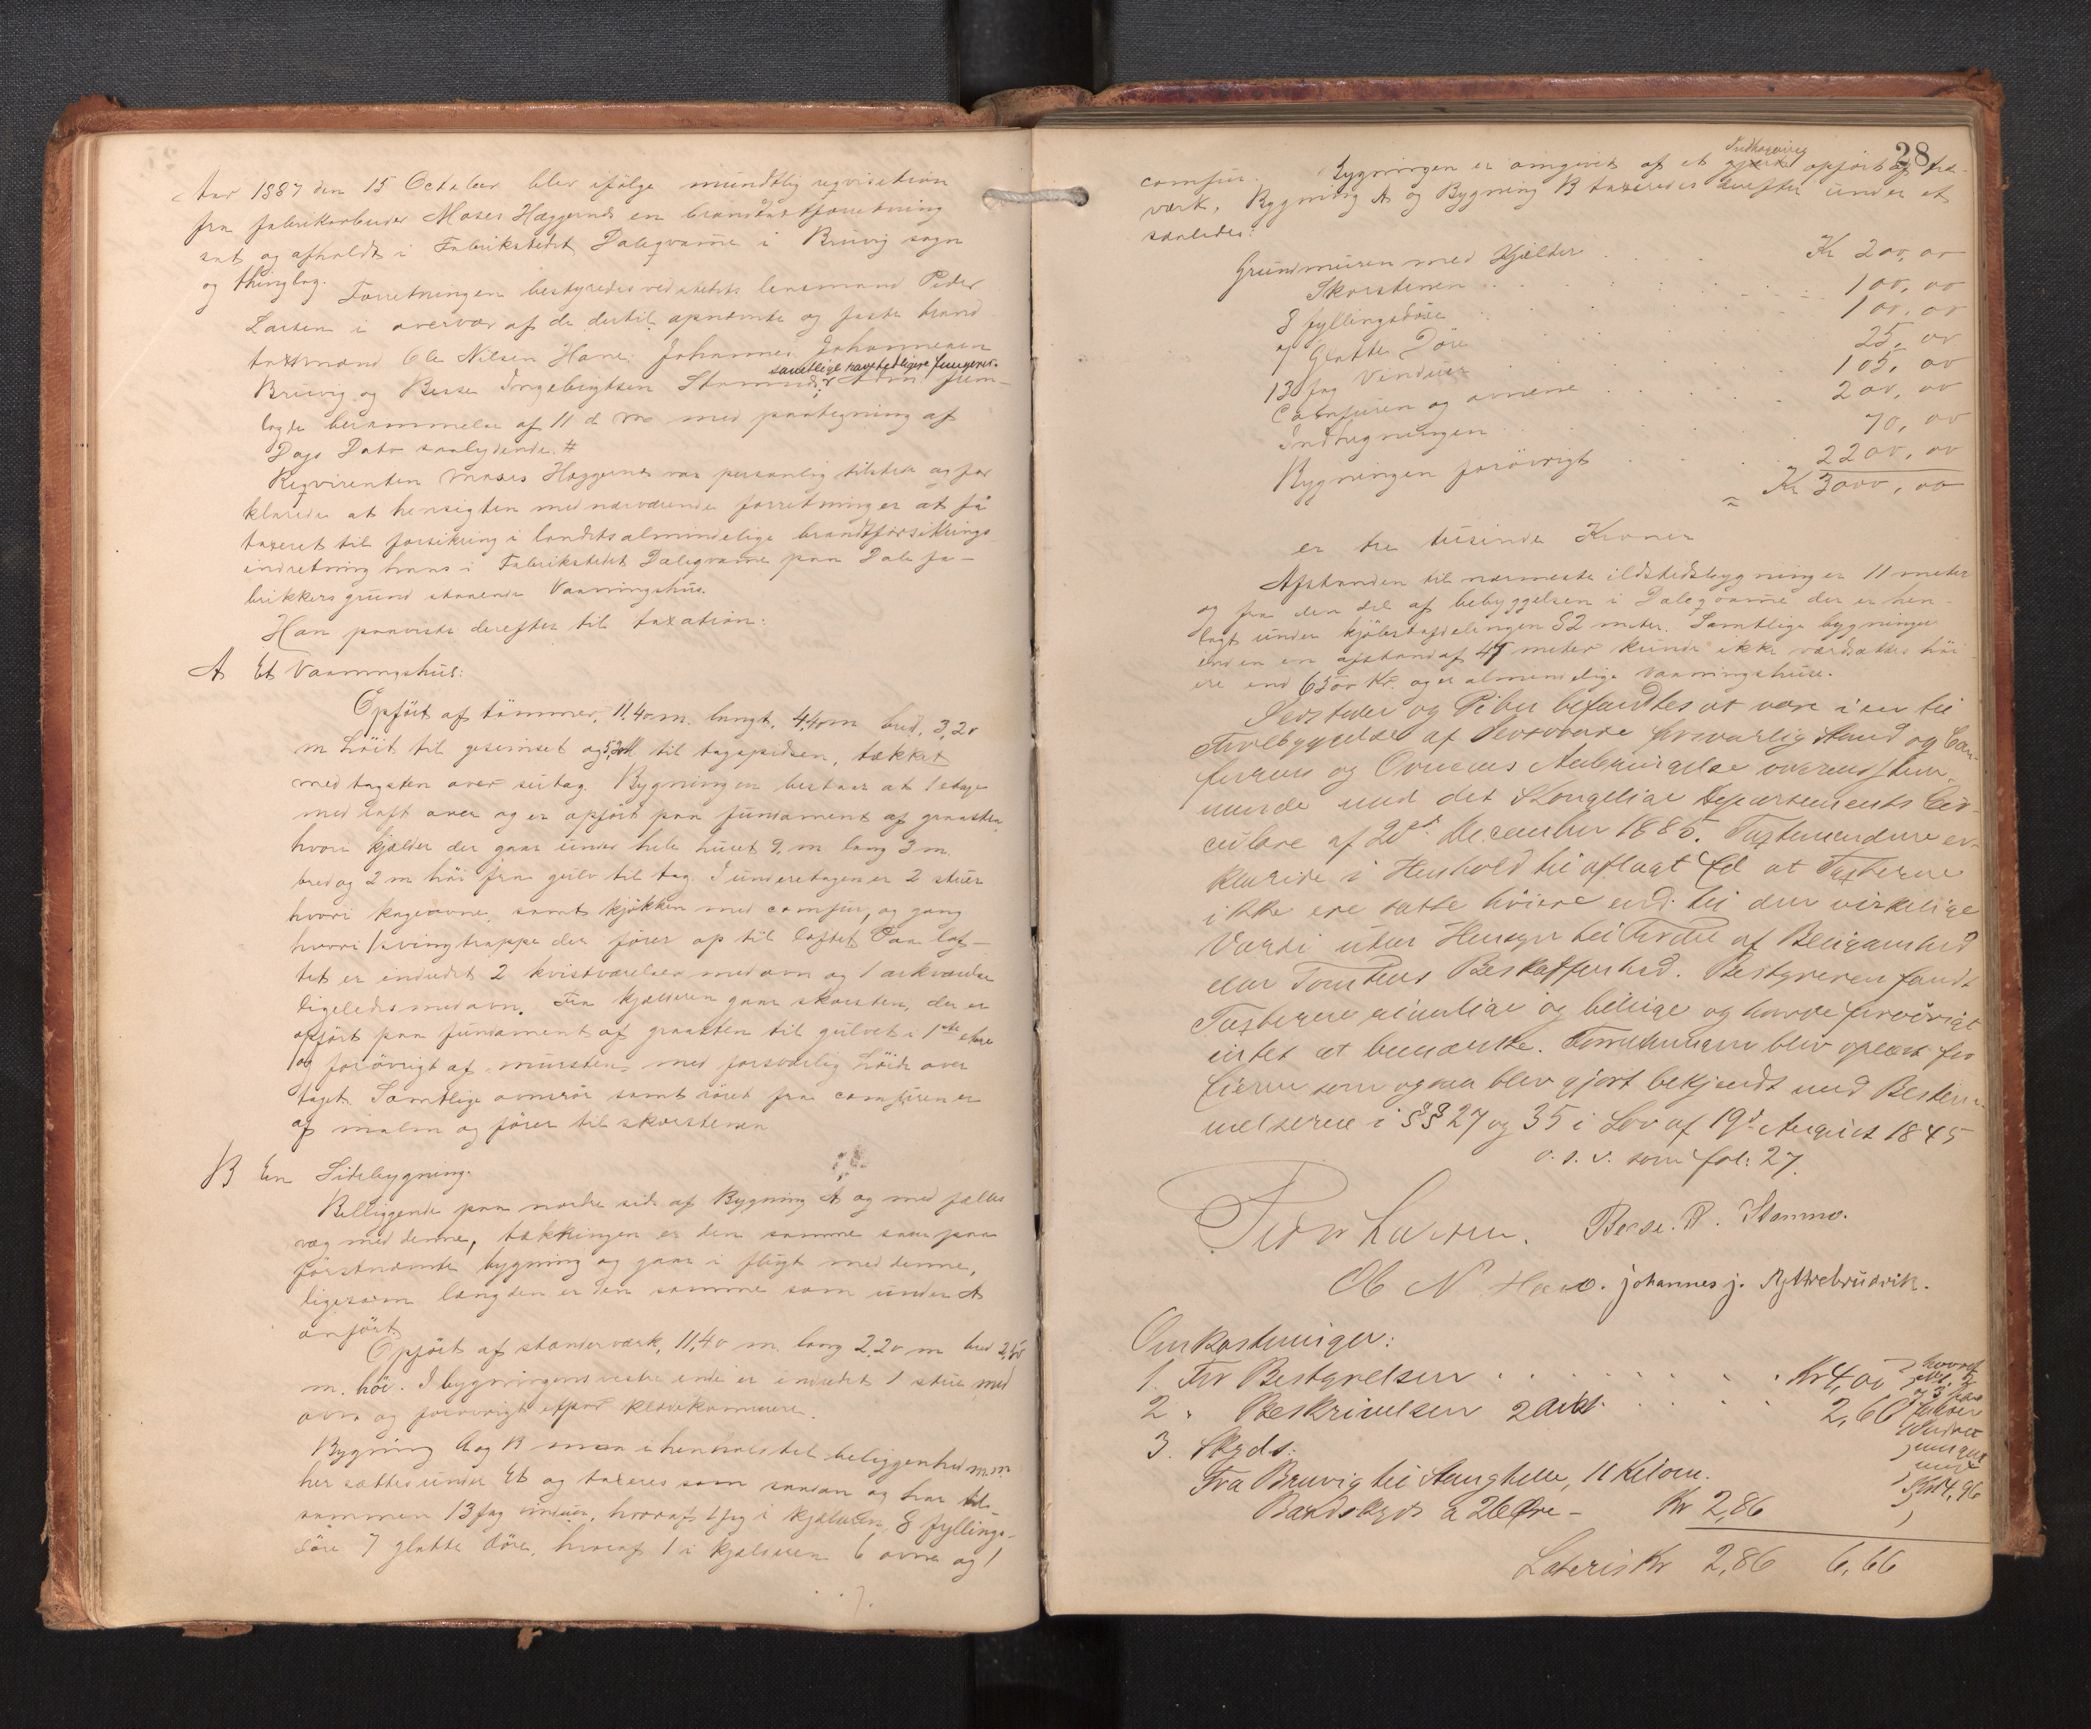 Aar 1887 den 15 October blev ifølge mundtlig reqvisition
fra fabrikarbeider Moses Hæggernes en brandtaxtforretning
sat og afholdt i Fabrikstedet Daleqvarne i Bruvig sogn
og thinglag.
Forretningen bestyredes ved stedets lensmand Peder
Larsen i overvær af de dertil opnævnte og faste brand
taxtmænd Ole Nilsen Hane, Johannes Johannesen
samtlige
Bruvig og Berse Ingebrigtsen Stamnes, frem-
lagde berammelse af 11 d. m. med paategning af
Dags Dato saalydende. #
Reqvirenten Moses Hæggernes var personlig tilstede og for
klarede at hensigten med nærværende forretning er at få
taxeret til forsikring i landets almindelige brandforsikrings
indretning hans i Fabrikstedet Daleqvarne paa Dale fa-
brikkers grund staaende Vaaningshus.
Han paaviste derefter til taxation:
A Et Vaaningshus:
Opført af tømmer, 11,40 m. langt, 4,40 m bred, 3,20
m høit til gesimset og 5,20 M til tagspidsen, tækket
med tagsten over sutag. Bygningen bestaar af 1 etage
med loft over og er opført paa fundament af graasten,
hvori kjælder der gaar under hele huset 9. m lang 3 m.
bred og 2 m høi fra gulv til tag. I underetagen er 2 stuer
hvori kageovne, samt kjøkken med comfur, og gang
hvori 1 svingtrappe der fører op til loftet. Paa lof-
tet er indredet 2 kvistværelser med ovn og 1 arkværelse
ligeledes med ovn. Fra kjælderen gaar skorsten, der er
opført paa fundament af graasten til gulvet i 1ste etage
og forøvrigt af mursten med forsvarlig høide over
taget. Samtlige ovnsrør samt røret fra comfuren er
af malm og fører til skorstenen
B En Sidebygning.
Beliggende paa nordre side af Bygning A og med fælles
væg med denne, tækkingen er den samme som paa
førstnævnte bygning og gaar i flugt med denne,
ligesom længden er den samme som under A
anført.
Opført af stænderværk, 11,40 m. lang 2,20 m bred 2,50
m. høi. I bygningens vestre ende er indredet 1 stue med
ovn og forøvrigt klædekammere.
Bygning A og B maa i henhold til beliggenhed m.m
her sættes under Et og taxeres som saadan og har til-
sammen 13 fag vinduer, hvoraf 1 fag i kjælderen, 8 fyllings-
døre 7 glatte døre, hvoraf 1 i kjælderen 6 ovne og 1
28
Indhegning
comfur. Bygningen er omgivet af et gjerde opført af træ-
værk. Bygning A og Bygning B taxeredes derefter under et
saaledes:
Grundmuren med Kjælder . . . . Kr 200,00
Skorstenen . . . . 100,00
8 fyllingsdøre . . . . 100,00
7 Glatte Døre . . . . 25,00
13 fag Vinduer . . . . 105,00
Comfuren og ovnene . . . . 200,00
Indhegningen . . . . 70,00
Bygningen forøvrigt . . . . 2200,00
= Kr 3000,00
er tre tusinde Kroner
Afstanden til nærmeste ildstedsbygning er 11 meter
og fra den del af bebyggelsen i Daleqvarne der er hen
lagt under kjøbstadsdelingen 82 meter. Samtlige bygninger
inden en afstand af 47 meter kunde ikke værdsættes høi
ere end 6500 Kr. og er almindelige vaaningshuse.
Ildsteder og Piber befandtes at være i en til
Forebyggelse af Ildsvaade forsvarlig Stand og Com-
furens og Ovnenes Anbringelse overensstem-
mende med det Kongelige Departements Cir-
culære af 20de December 1885. Taxtmændene er-
klærede i Henhold til aflagt Ed at Taxterne
ikke ere satte høiere end til den virkelige
Værdi uden Hensyn til Fordel af Beliggenhed
eller Tomtens Beskaffenhed. Bestyreren fandt
Taxterne rimelige og billige og havde forøvrigt
intet at bemærke. Forretningen blev oplæst for
Eieren som ogsaa blev gjort bekjendt med Bestem-
melserne i §§ 27 og 35 i Lov af 19de August 1845
o. s. v. som fol: 27.
Peder Larsen. Berse. R. Stamnes.
Ole N. Hane. johannes j. Yttrebrudvik.
Omkostninger:
1. For Bestyrelsen . . . . Kr 4,00
2 " Beskrivelsen 2 Ark . . . . 2,60
3. Skyds:
Fra Bruvig til Stanghelle, 11 Kilom.
Baadskyds a 26 Øre - Kr 2,86
Lateris Kr 2,86 6,66